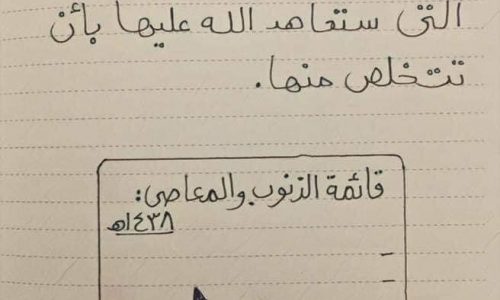 التي ستعاهد الله عليها بأن
تتخلص منها.
قائمة الذنوب والمعاصي:
١٤٣٨هـ
-
-